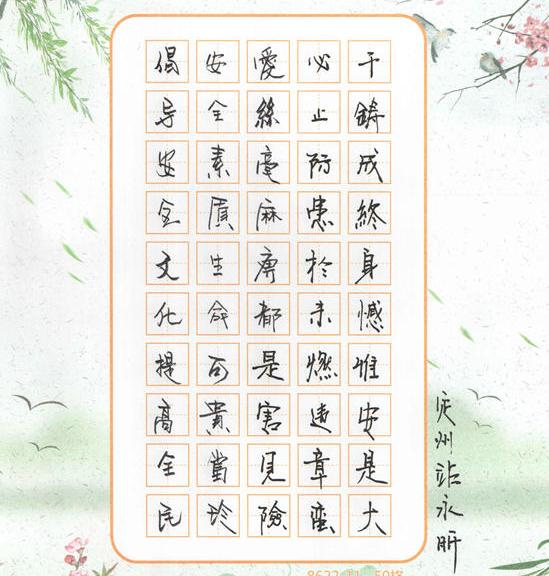 倡导安全文化提高全民
安全素质生命可貴當珍
愛絲毫麻痹都是害見險
必止防患於未燃違章蛮
干鑄成終身憾惟安是大
定州站永昕